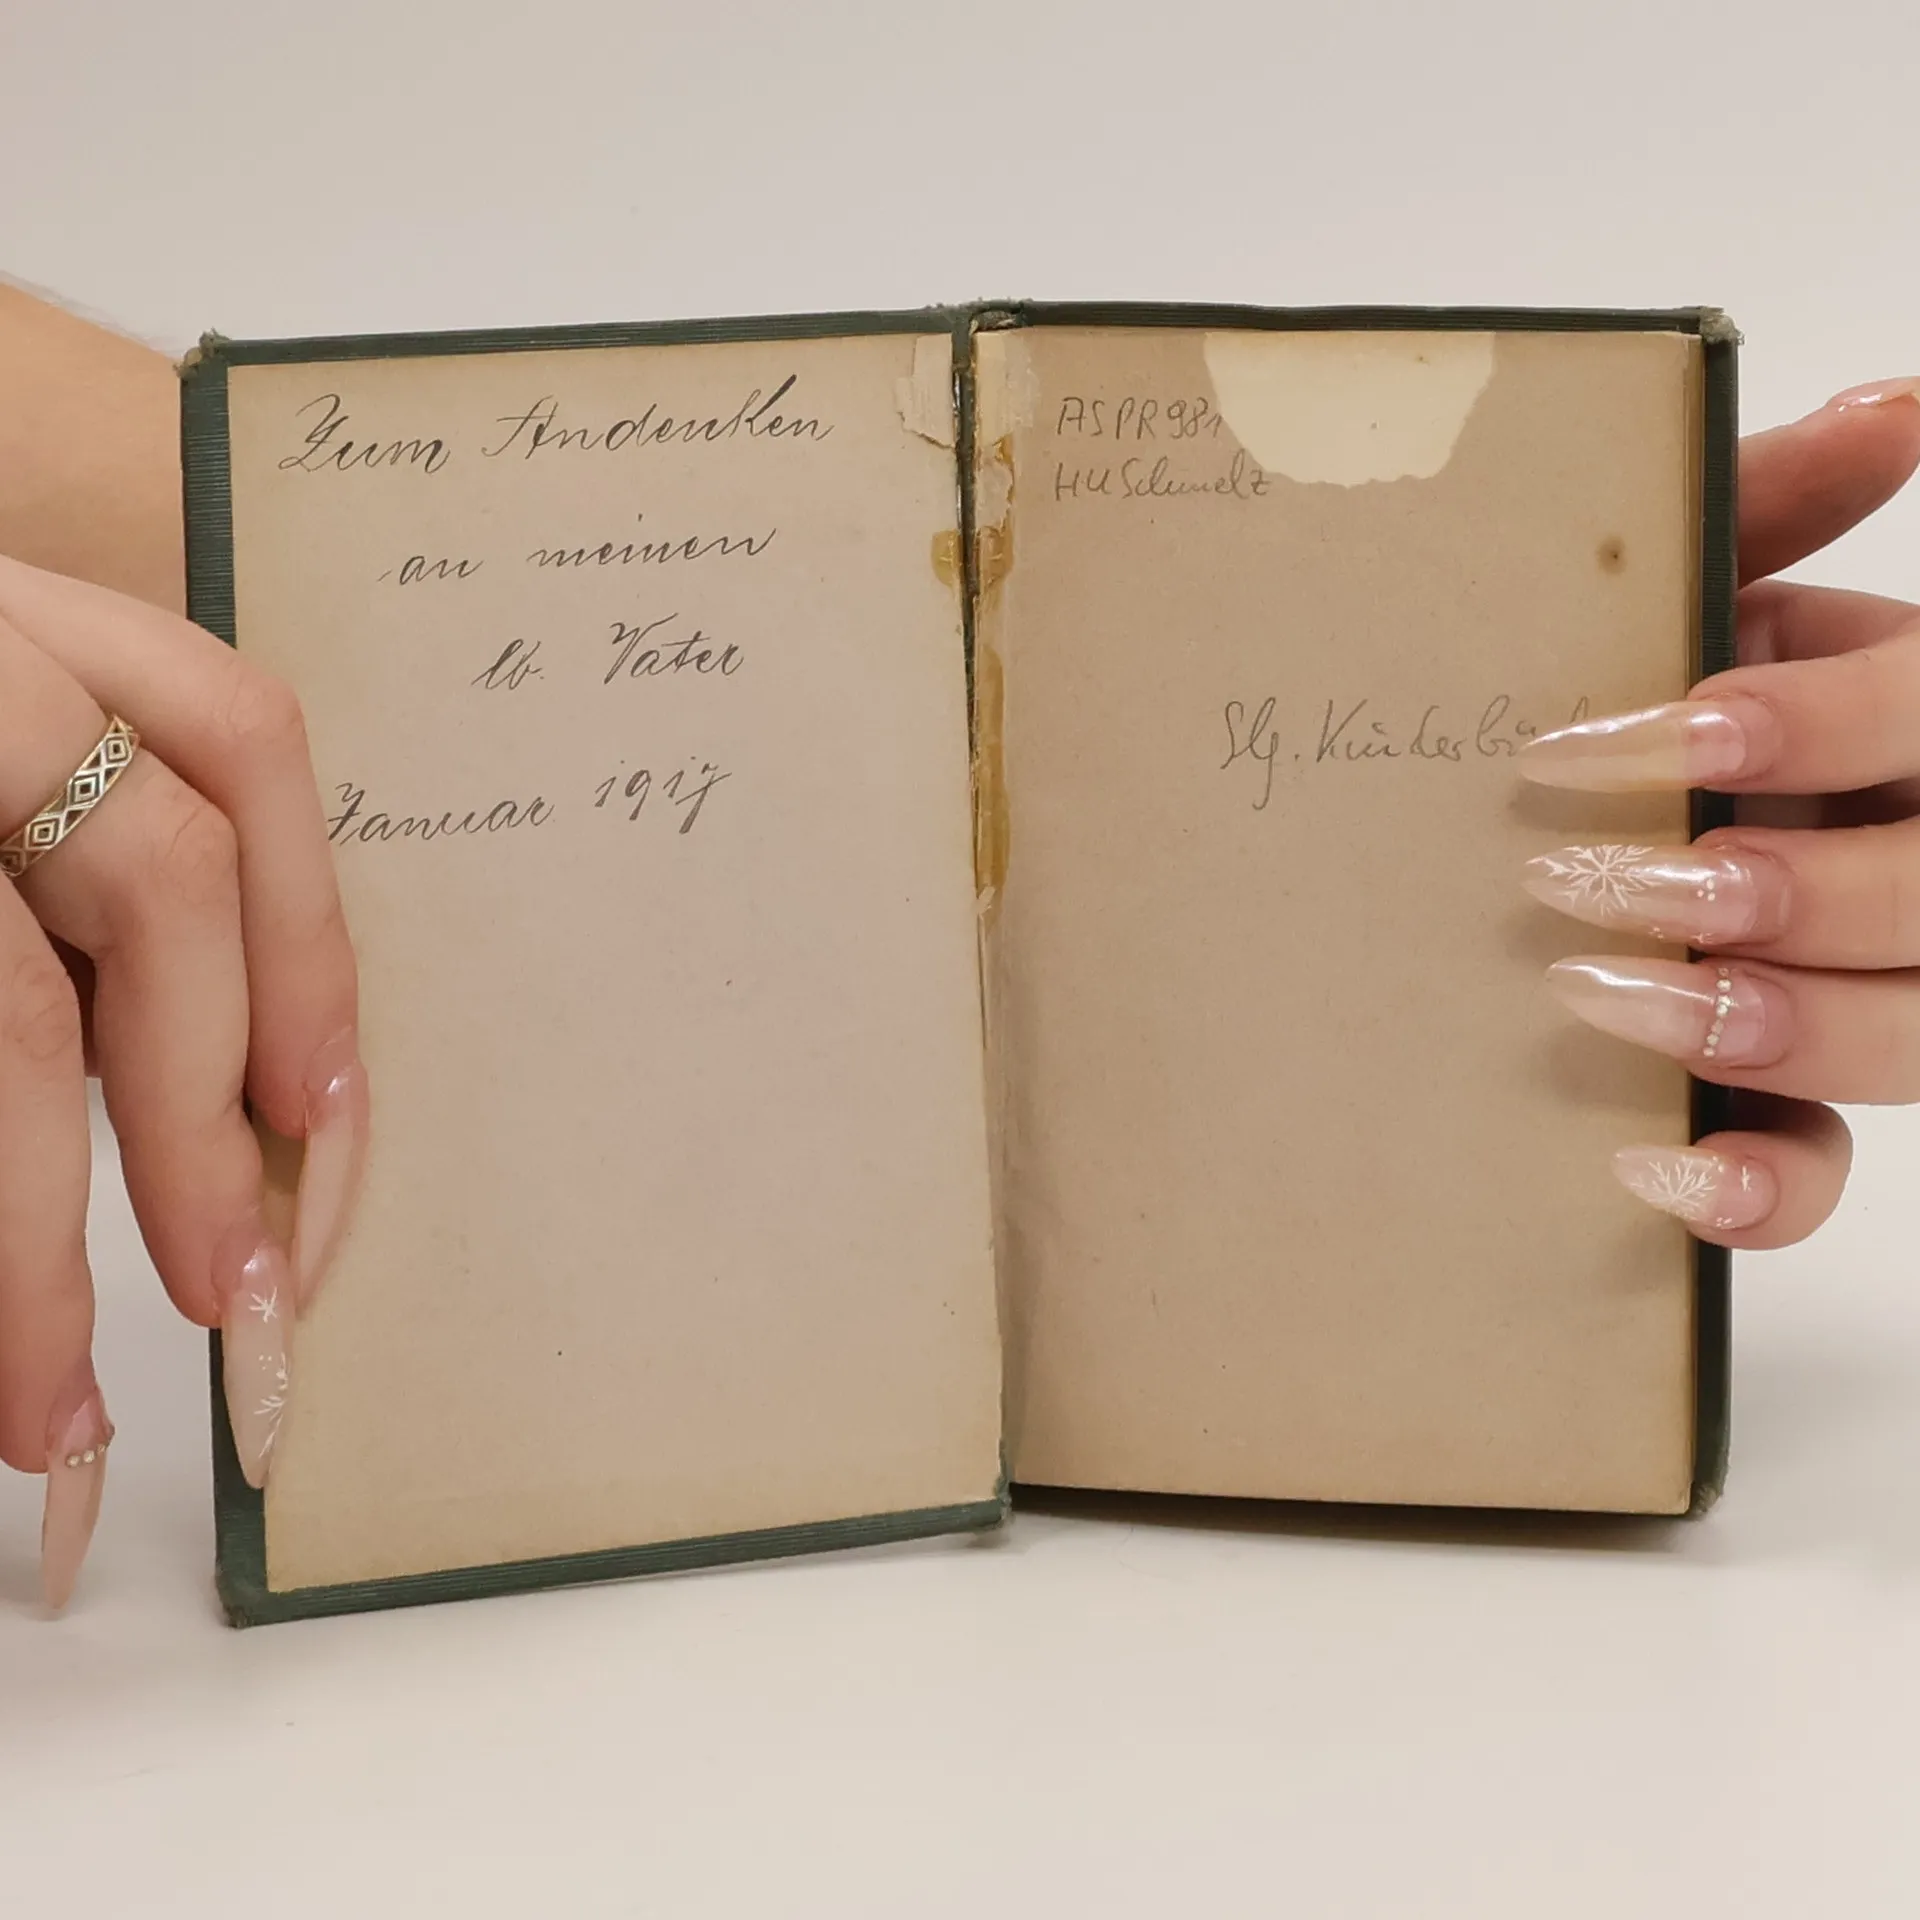 Zum Andenken
an meinen
lb. Vater
Januar 1917
ASPR981
HU Schmelz
Slg.